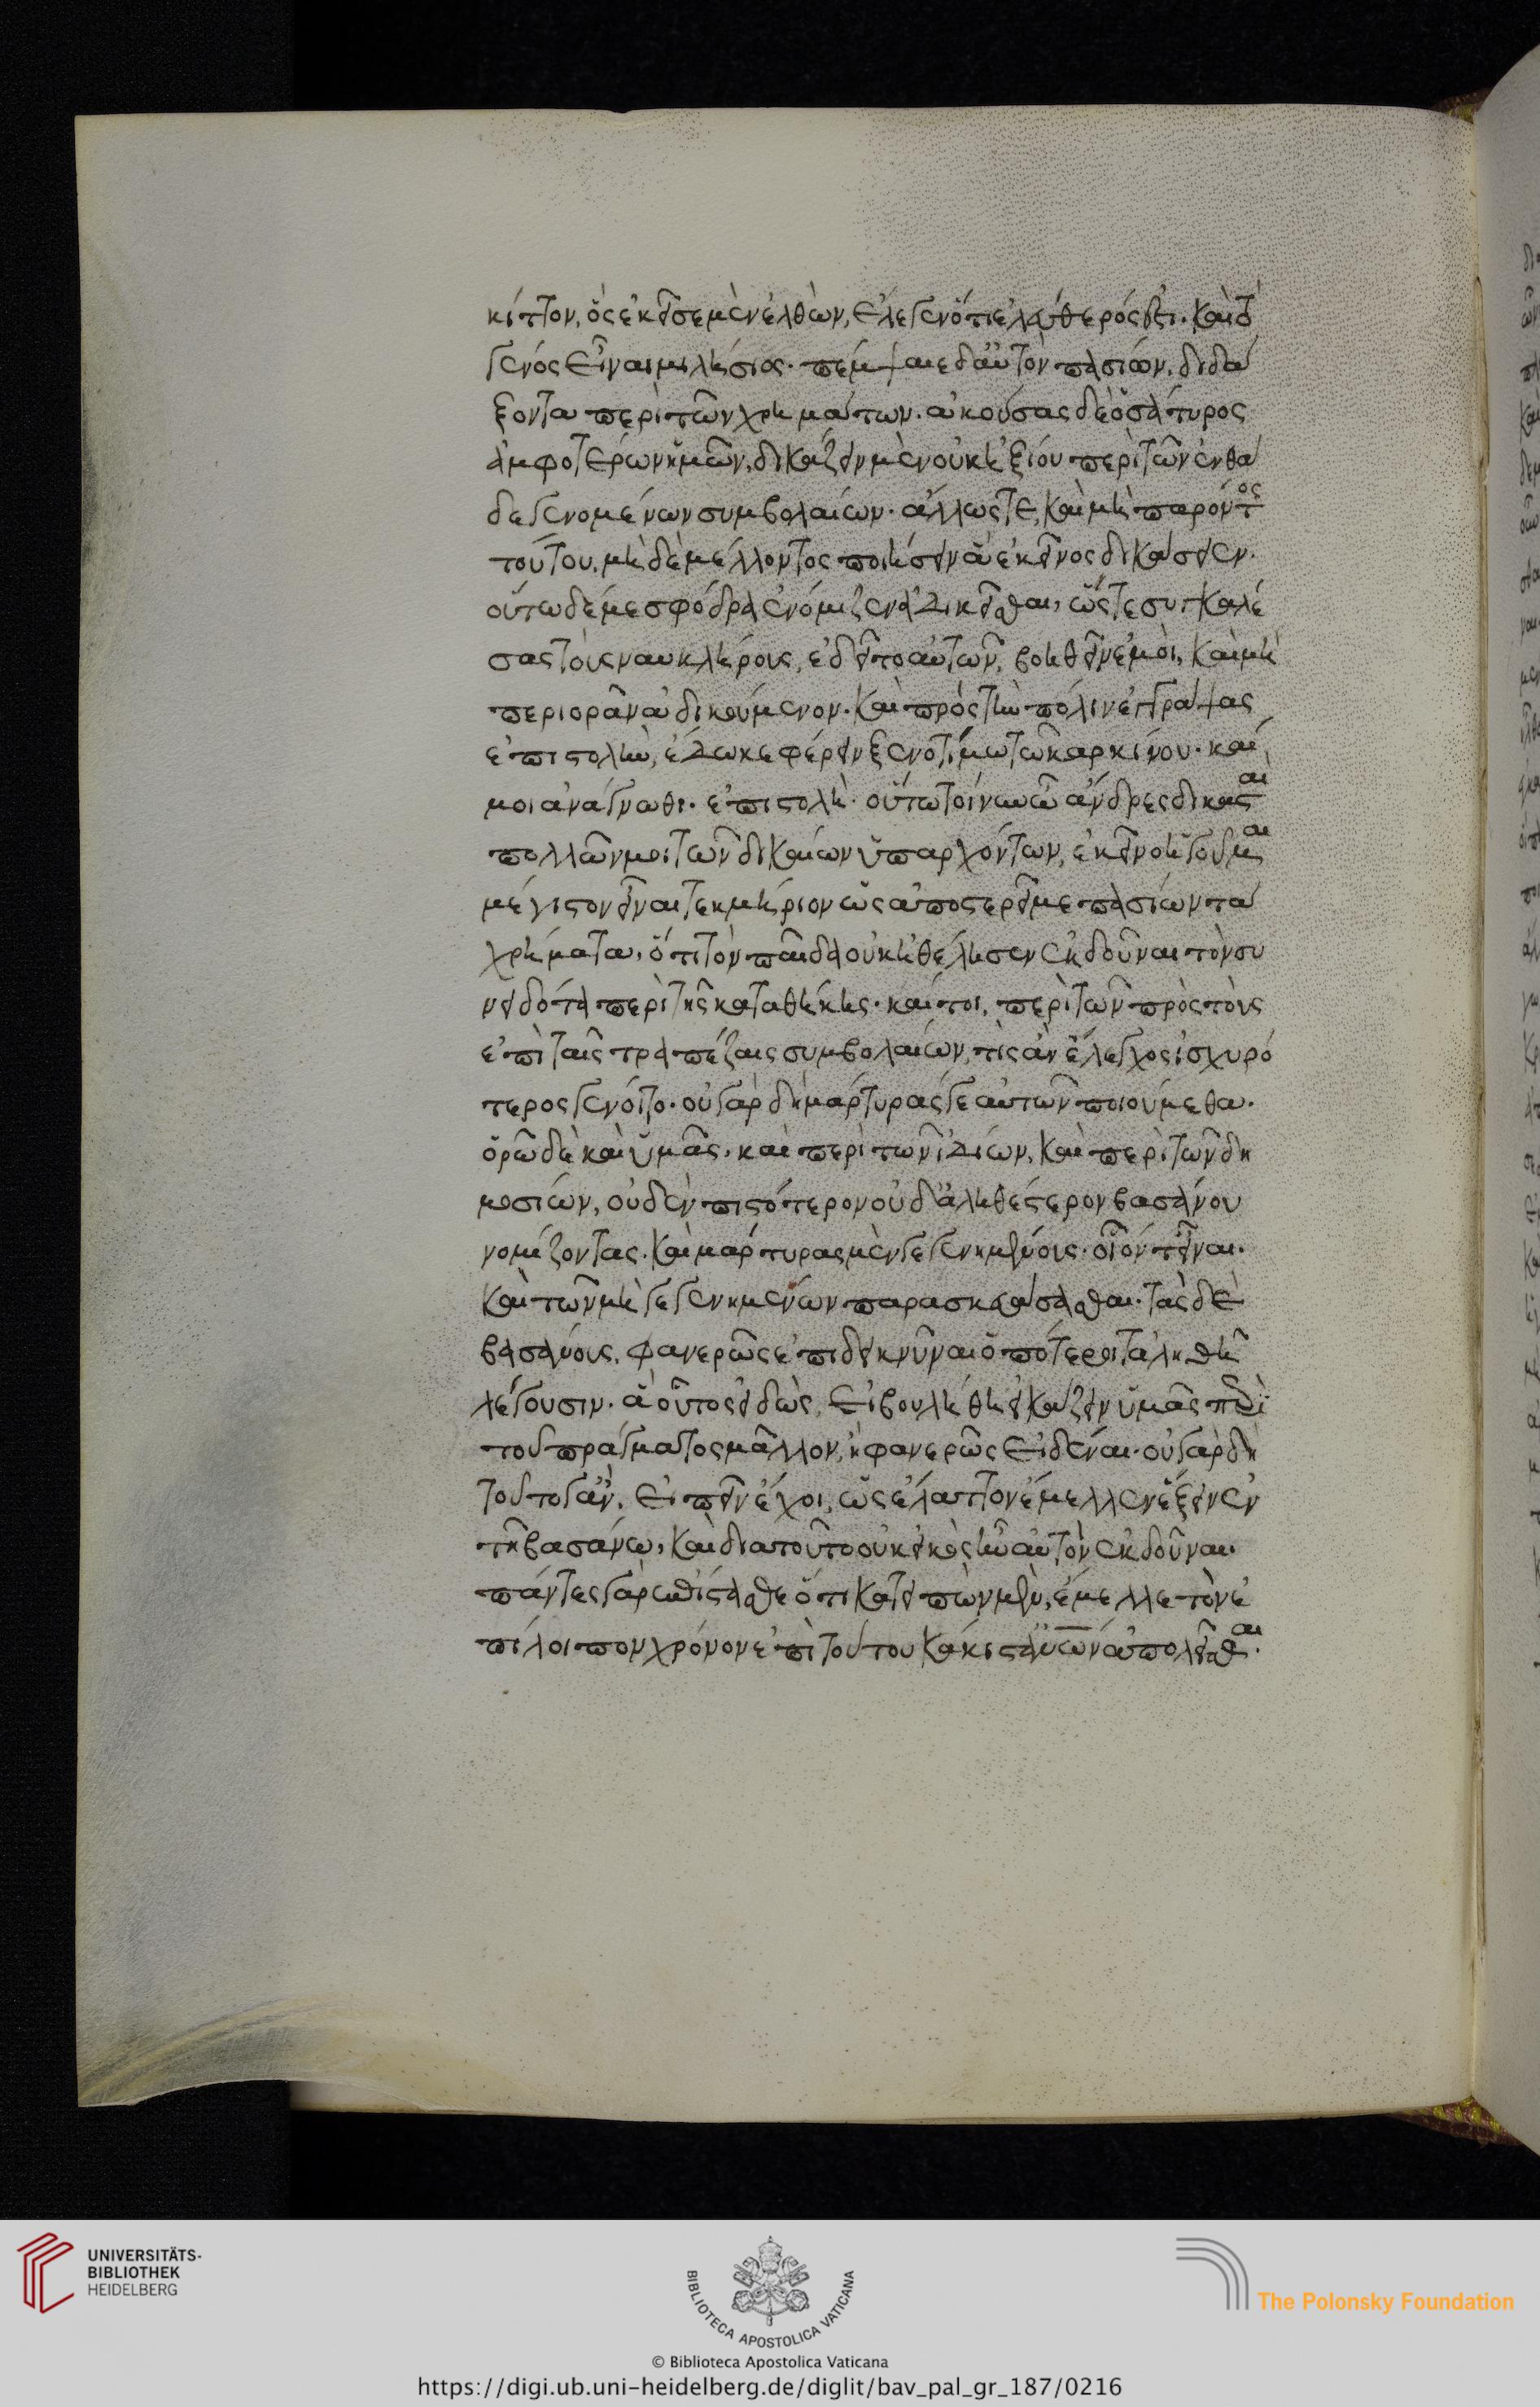 κίττον, ὃς ἐκεῖσε μὲν ἐλθὼν, ἔλεγεν ὅτι ἐλεύθερός ἐστι. καὶ τὸ
γένος εἶναι μιλήσιος. πέμψαιε δ' αὐτὸν πασίων, διδά
ξοντα περὶ τῶν χρημάτων. ἀκούσας δὲ ὁ σάτυρος
ἀμφοτέρων ἡμῶν, δικάζειν μὲν οὐκ ἠξίου περὶ τῶν ἐνθά
δε γενομένων συμβολαίων. ἄλλως τε, καὶ μὴ παρόντος
τούτου, μὴ δὲ μέλλοντος ποιήσειν ἃ ἐκεῖνος δικάσειεν.
οὕτω δέ με σφόδρα ἐνόμιζεν ἀδικεῖσθαι, ὥστε συγκαλέ
σας τοὺς ναυκλήρους, ἐδεῖτο αὐτῶν, βοηθεῖν ἐμοὶ, καὶ μὴ
περιορᾶν ἀδικούμενον. καὶ πρὸς τὴν πόλιν ἐπιγράψας
ἐπιστολὴν, ἔδωκε φέρειν ξενοτίμω τῶ καρκίνου. καί
μοι ἀνάγνωθι. ἐπιστολή. οὕτω τοίνυν ὦ ἄνδρες δικασταὶ
πολλῶν μοι τῶν δικαίων ὑπαρχόντων, ἐκεῖνο ἡγοῦμαι
μέγιστον εἶναι τεκμήριον ὡς ἀποστερεῖ με πασίων τὰ
χρήματα, ὅτι τὸν παῖδα οὐκ ἠθέλησεν ἐκδοῦναι τὸν συ
νειδότα περὶ τῆς καταθήκης. καίτοι, περὶ τῶν πρὸς τοὺς
ἐπὶ ταῖς τραπέζαις συμβολαίων, τίς ἂν ἔλεγχος ἰσχυρό
τερος γένοιτο. οὐ γὰρ δὴ μάρτυράς γε αὐτῶν ποιούμεθα.
ὁρῶ δὲ καὶ ὑμᾶς, καὶ περὶ τῶν ἰδίων, καὶ περὶ τῶν δη
μοσίων, οὐδὲν πιστότερον οὐδ' ἀληθέστερον βασάνου
νομίζοντας. καὶ μάρτυρας μὲν γεγενημένοις. οἷόν τ' εἶναι.
καὶ τῶν μὴ γεγενημένων παρασκευάσασθαι. τὰς δὲ
βασάνους, φανερῶς ἐπιδεικνύναι ὁπότεροι τἀληθῆ
λέγουσιν. ἃ οὗτος εἰδὼς, ἐβουλήθη εἰκάζειν ὑμᾶς περὶ
τοῦ πράγματος μᾶλλον, ἢ φανερῶς εἰδέναι. οὐ γὰρ δὴ
τοῦτο γ' ἂν, εἰπεῖν ἔχοι, ὡς ἔλαττον ἔμελλεν ἕξειν ἐν
τῇ βασάνω, καὶ διατοῦτο οὐκ εἰκὸς ἦν αὐτὸν ἐκδοῦναι.
πάντες γὰρ ἐπίστασθε ὅτι κατειπὼν μὲν, ἔμελλε τὸν ἐ
πίλοιπον χρόνον ἐπὶ τούτου κάκιστ' ἀνθρώπων ἀπολεῖσθαι.
UNIVERSITÄTS-
BIBLIOTHEK
HEIDELBERG
BIBLIOTECA APOSTOLICA VATICANA
The Polonsky Foundation
© Biblioteca Apostolica Vaticana
https://digi.ub.uni-heidelberg.de/diglit/bav_pal_gr_187/0216